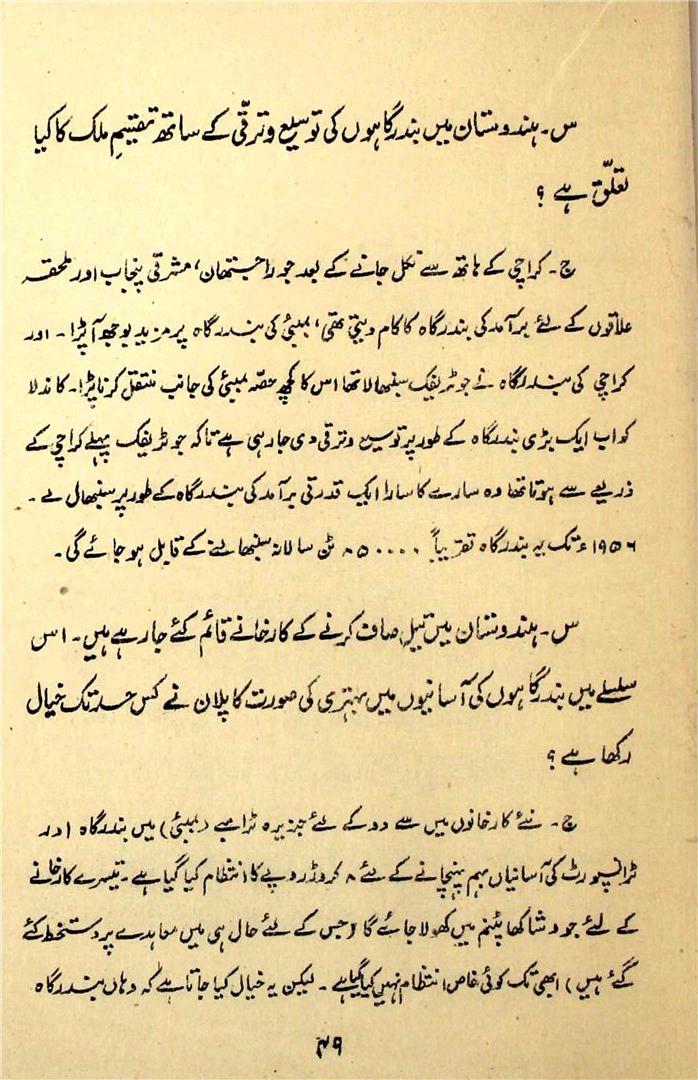 س۔ ہندوستان میں بندرگاہوں کی توسیع و ترقّی کے ساتھ تقسیمِ ملک کا کیا
تعلّق ہے ؟
ج۔ کراچی کے ہاتھ سے نکل جانے کے بعد جو راجستھان، مشرقی پنجاب اور ملحقہ
علاقوں کے لئے برآمد کی بندرگاہ کا کام دیتی تھی، بمبئی کی بندرگاہ پر مزید بوجھ آپڑا۔ اور
کراچی کی بندرگاہ نے جو ٹریفک سنبھالا تھا اس کا کچھ حصّہ بمبئی کی جانب منتقل کرنا پڑا۔ کاندلا
کو اب ایک بڑی بندرگاہ کے طور پر توسیع و ترقی دی جارہی ہے تاکہ جو ٹریفک پہلے کراچی کے
ذریعے سے ہوتا تھا وہ سارے کا سارا ایک قدرتی برآمد کی بندرگاہ کے طور پر سنبھال لے۔
۱۹۵۶ء تک یہ بندرگاہ تقریباً ۸۵۰۰۰۰ ٹن سالانہ سنبھالنے کے قابل ہو جائے گی۔
س۔ ہندوستان میں تیل صاف کرنے کے کارخانے قائم کئے جارہے ہیں۔ اس
سلسلے میں بندرگاہوں کی آسانیوں میں بہتری کی صورت کا پلان نے کس حد تک خیال
رکھا ہے ؟
ج۔ نئے کارخانوں میں سے دو کے لئے جزیرہ ٹرامبے (بمبئی) میں بندرگاہ اور
ٹرانسپورٹ کی آسانیاں بہم پہنچانے کے لئے ۸ کروڑ روپے کا انتظام کیا گیا ہے۔ تیسرے کارخانے
کے لئے جو وشاکھاپٹنم میں کھولا جائے گا (جس کے لئے حال ہی میں معاہدے پر دستخط کئے
گئے ہیں) ابھی تک کوئی خاص انتظام نہیں کیا گیا ہے۔ لیکن یہ خیال کیا جاتا ہے کہ وہاں بندرگاہ
۴۹